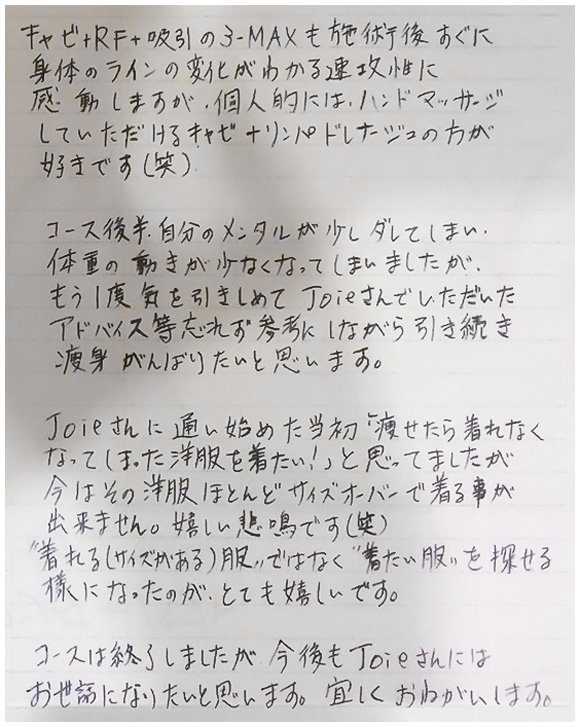 キャビ+RF+吸引の3-MAXも施術後すぐに
身体のラインの変化がわかる速攻性に
感動しますが、個人的には、ハンドマッサージ
していただけるキャビ+リンパドレナージュの方が
好きです(笑)
コース後半、自分のメンタルが少しダレてしまい、
体重の動きが少なくなってしまいましたが、
もう1度気を引きしめてJoieさんでいただいた
アドバイス等忘れず参考にしながら引き続き
痩身がんばりたいと思います。
Joieさんに通い始めた当初「痩せたら着れなく
なってしまった洋服を着たい!」と思ってましたが
今はその洋服ほとんどサイズオーバーで着る事が
出来ません。嬉しい悲鳴です(笑)
"着れる(サイズがある)服"ではなく"着たい服"を探せる
様になったのが、とても嬉しいです。
コースは終了しましたが今後もJoieさんには
お世話になりたいと思います。宜しくおねがいします。